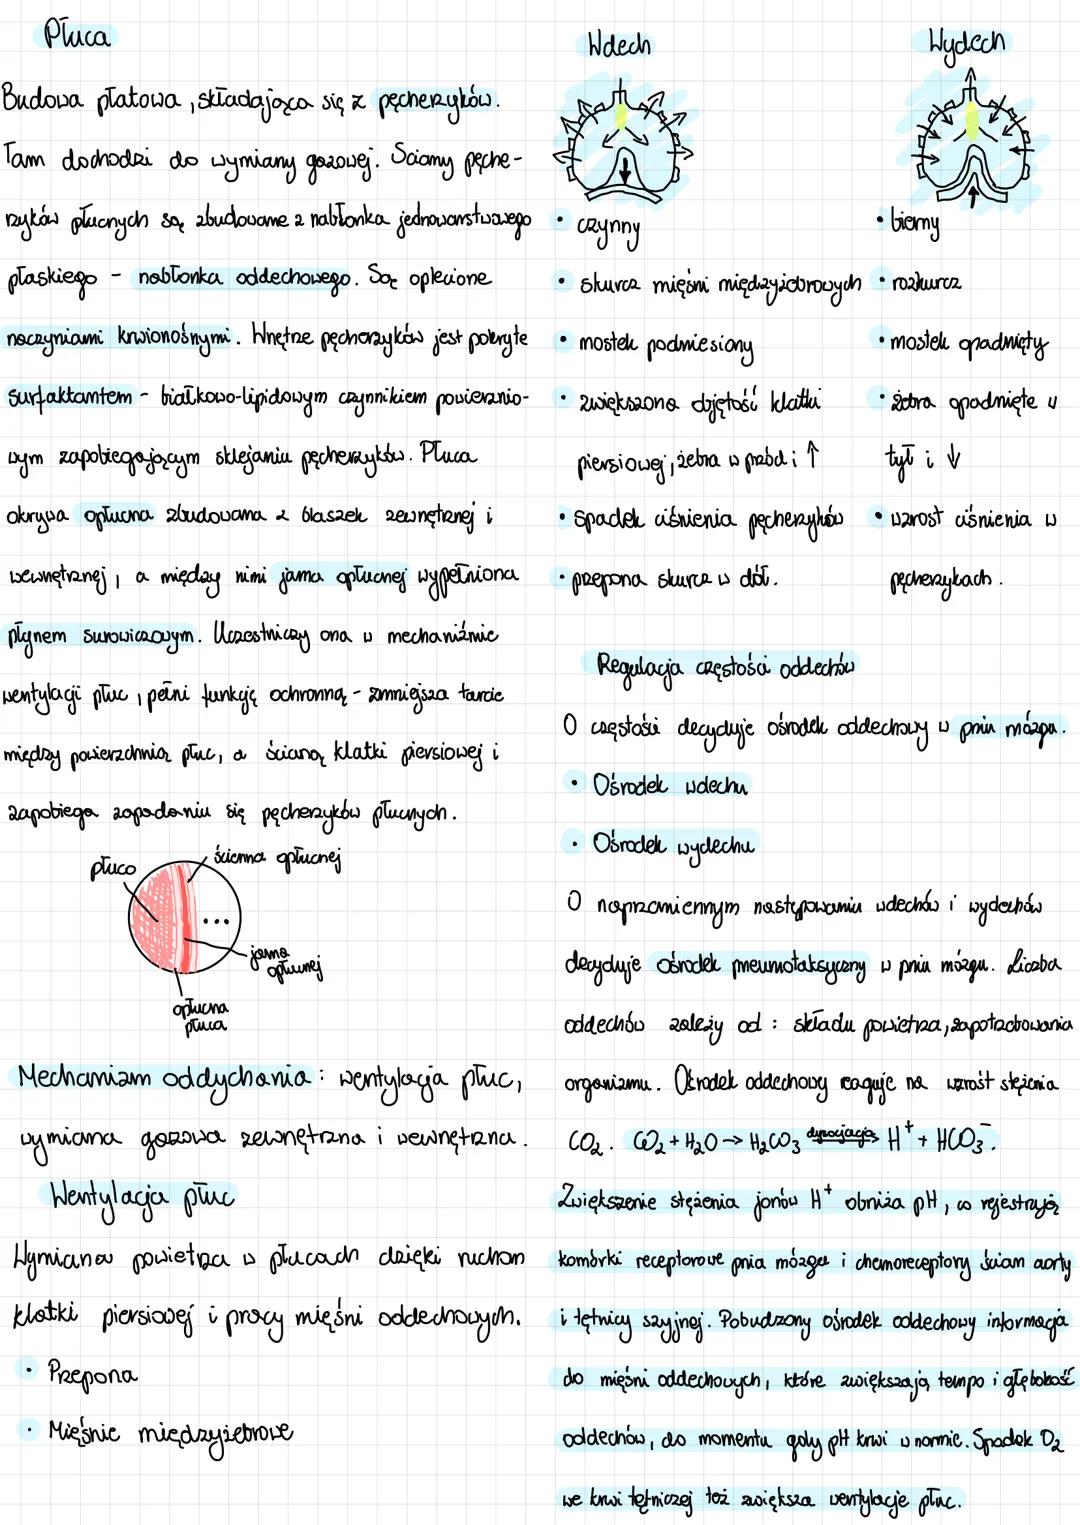 Płuca
Budowa płatowa, składająca się z pęcherzyków.
Tam dochodzi do wymiany gazowej. Ściany pęche-
rzyków płucnych są zbudowane z nabłonka jednowarstwowego
płaskiego - nabłonka oddechowego. Są oplecione
naczyniami krwionośnymi. Wnętrze pęcherzyków jest pokryte
surfaktantem - białkowo-lipidowym czynnikiem powierznio-
wym zapobiegającym sklejaniu pęcherzyków. Płuca
okrywa opłucna zbudowana z blaszek zewnętrznej i
wewnętrznej, a między nimi jama opłucnej wypełniona
płynem surowiczowym. Uczestniczy ona w mechaniźmie
wentylacji płuc, pełni funkcję ochronną - zmniejsza tarcie
między powierzchnią płuc, a ścianą klatki piersiowej i
zapobiega zapadaniu się pęcherzyków płucnych.
płuco
ścienna opłucnej
jama
opłucnej
opłucna
płuca
Mechanizm oddychania: wentylacja płuc,
wymiana gazowa zewnętrzna i wewnętrzna.
Wentylacja płuc
Wymiana powietrza w płucach dzięki ruchom
klatki piersiowej i pracy mięśni oddechowych.
• Przepona
• Mięśnie międzyżebrowe
Wdech
• czynny
• skurcz mięśni międzyżebrowych
• mostek podniesiony
• zwiększona objętość klatki
piersiowej, żebra w przód i ↑
• spadek ciśnienia pęcherzyków
• przepona skurcz w dół.
Wydech
• bierny
• rozkurcz
• mostek opadnięty
• żebra opadnięte w
tył i ↓
• wzrost ciśnienia w
pęcherzykach.
Regulacja częstości oddechów
O częstości decyduje ośrodek oddechowy w pniu mózgu.
• Ośrodek wdechu
• Ośrodek wydechu
O naprzemiennym następowaniu wdechów i wydechów
decyduje ośrodek pneumotaksyczny w pniu mózgu. Liczba
oddechów zależy od: składu powietrza, zapotrzebowania
organizmu. Ośrodek oddechowy reaguje na wzrost stężenia
CO₂. CO₂ + H₂O → H₂CO₃ dysocjacja→ H⁺ + HCO₃⁻.
Zwiększenie stężenia jonów H⁺ obniża pH, co rejestrują
komórki receptorowe pnia mózgu i chemoreceptory ścian aorty
i tętnicy szyjnej. Pobudzony ośrodek oddechowy informacja
do mięśni oddechowych, które zwiększają tempo i głębokość
oddechów, do momentu gdy pH krwi w normie. Spadek O₂
we krwi tętniczej też zwiększa wentylacje płuc.